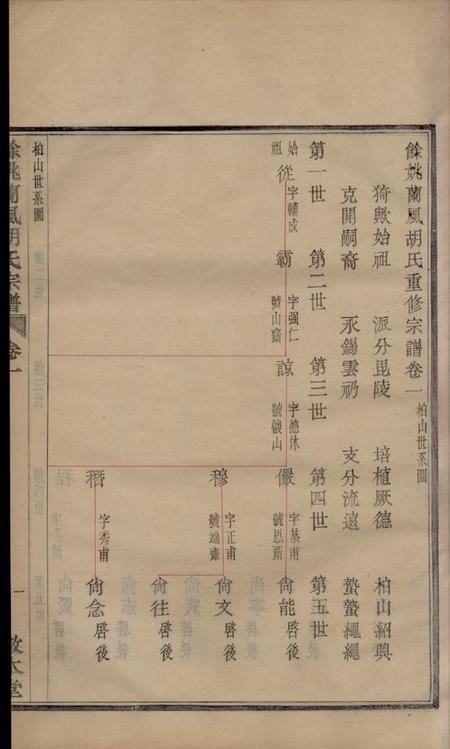 餘姚蘭風胡氏重修宗譜卷一 柏山世系圖
猗歟始祖 派分毘陵 培植厥德 柏山紹興
克開嗣裔 永錫雲礽 支分流遠 蟄蟄繩繩
第一世 第二世 第三世 第四世 第五世
始祖 從 字輔成 霸 字强仁 號山齋 諒 字德休 號懷山 儼 字恭甫 號思齋 尙能 啓後
穆 字正甫 號端齋 尙文 啓後
尙往 啓後
穡 字秀甫 尙念 啓後
柏山世系圖
餘姚蘭風胡氏宗譜 卷一 一 敦本堂